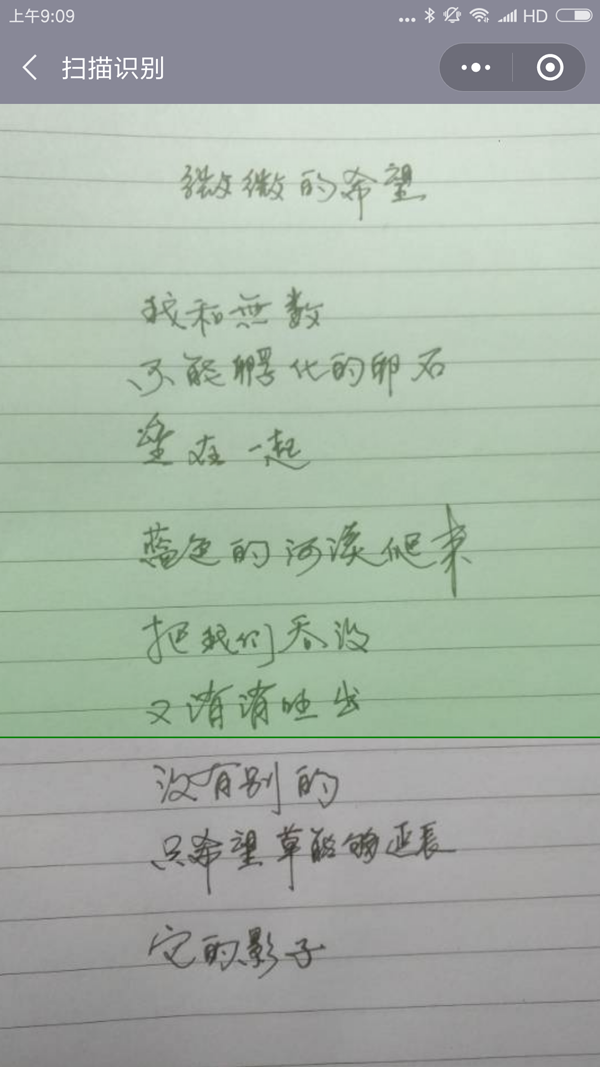 上午9:09
HD
扫描识别
微微的希望
我和無数
不能孵化的卵石
垒在一起
蓝色的河溪爬来
把我们吞没
又悄悄吐出
没有别的
只希望草能够延长
它的影子